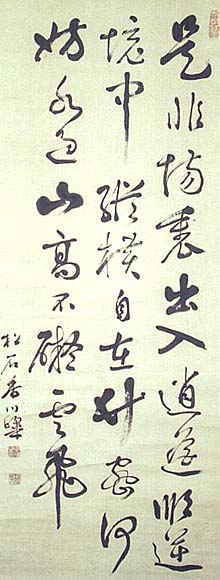 是非場裏出入逍遥順逆
境中縱横自在竹密何
妨水過山高不礙雲飛
松石香川